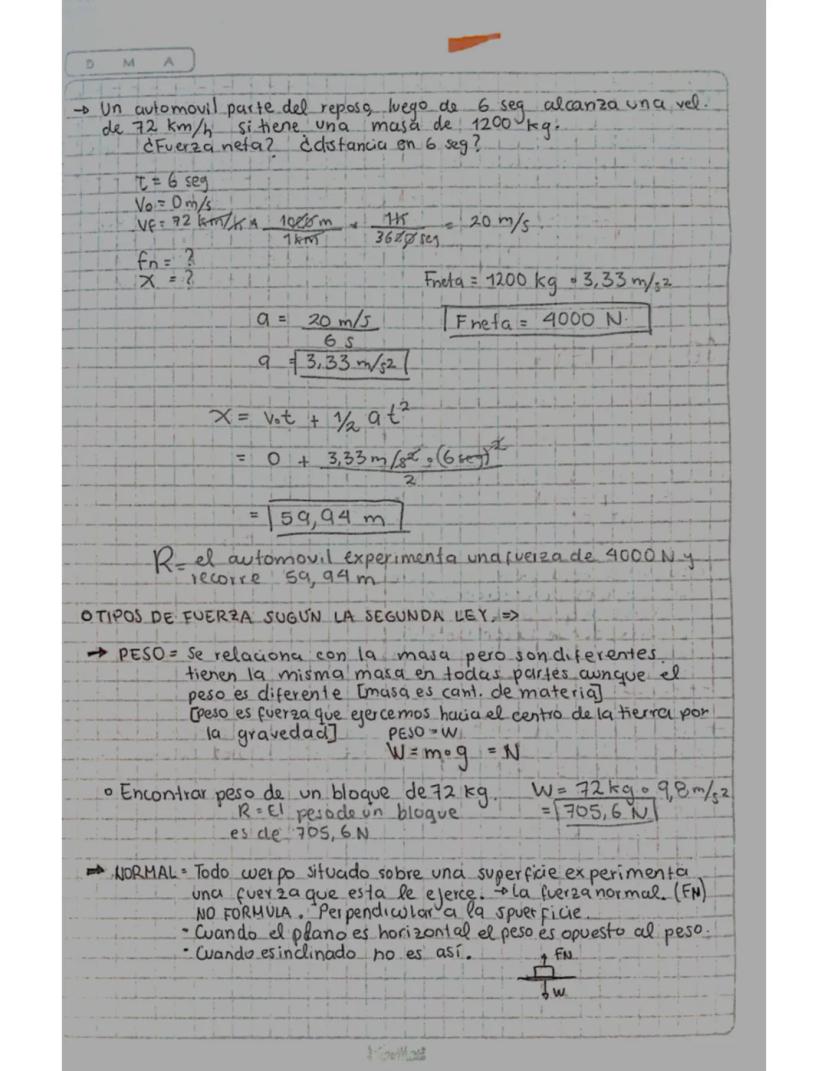 D M A
→ Un automovil parte del reposo, luego de 6 seg alcanza una vel.
de 72 km/h si tiene una masa de 1200 kg.
¿Fuerza neta? ¿distancia en 6 seg?
t = 6 seg
Vo = 0 m/s
Vf = 72 km/h * 1000 m / 1 km * 1h / 3600 seg = 20 m/s
Fn = ?
x = ?
Fneta = 1200 kg • 3,33 m/s2
a = 20 m/s / 6 s
Fneta = 4000 N
a = 3,33 m/s2
x = Vot + 1/2 at²
= 0 + 3,33 m/s² • (6 seg)² / 2
= 59,94 m
R= el automovil experimenta una fuerza de 4000 N y
recorre 59,94 m
O TIPOS DE FUERZA SUGÚN LA SEGUNDA LEY. =>
→ PESO = Se relaciona con la masa pero son diferentes.
tienen la misma masa en todas partes aunque el
peso es diferente [masa es cant. de materia]
[peso es fuerza que ejercemos hacia el centro de la tierra por
la gravedad] PESO = W
W = m•g = N
o Encontrar peso de un bloque de 72 kg. W = 72 kg • 9,8 m/s2
R = El peso de un bloque = 705,6 N
es de 705,6 N
→ NORMAL = Todo cuerpo situado sobre una superficie experimenta
una fuerza que esta le ejerce. → La fuerza normal. (FN)
NO FORMULA. Perpendicular a la spuerficie.
- Cuando el plano es horizontal el peso es opuesto al peso.
- Cuando es inclinado no es así.
FN
W